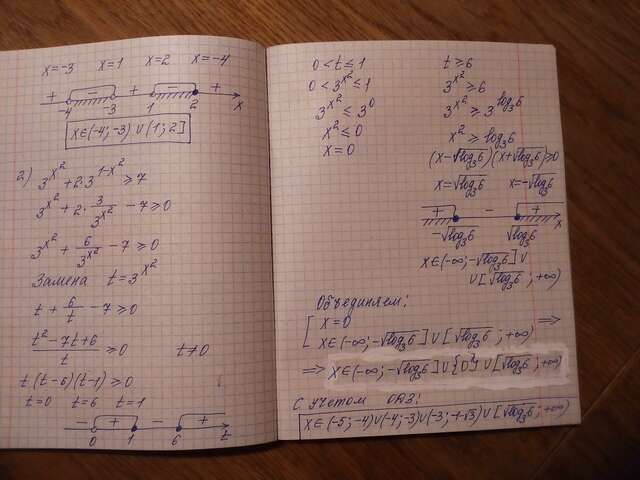 x=-3 x=1 x=2 x=-4
+ − + − +
-4 -3 1 2 x
x∈(-4;-3)∪(1;2]
2) 3^{x²}+2·3^{1-x²}≥7
3^{x²}+2·3/3^{x²}-7≥0
3^{x²}+6/3^{x²}-7≥0
Замена t=3^{x²}
t+6/t-7≥0
(t²-7t+6)/t≥0 t≠0
t(t-6)(t-1)≥0
t=0 t=6 t=1
− + − +
0 1 6 t
0<t≤1
0<3^{x²}≤1
3^{x²}≤3⁰
x²≤0
x=0
t≥6
3^{x²}≥6
3^{x²}≥3^{log₃6}
x²≥log₃6
(x-√log₃6)(x+√log₃6)≥0
x=√log₃6 x=-√log₃6
+ − +
-√log₃6 √log₃6 x
x∈(-∞;-√log₃6]∪
∪[√log₃6;+∞)
Объединяем:
[ x=0
x∈(-∞;-√log₃6]∪[√log₃6;+∞) =>
=> x∈(-∞;-√log₃6]∪{0}∪[√log₃6;+∞)
С учетом ОДЗ:
x∈(-5;-4)∪(-4;-3)∪(-3;-√3)∪[√log₃6;+∞)